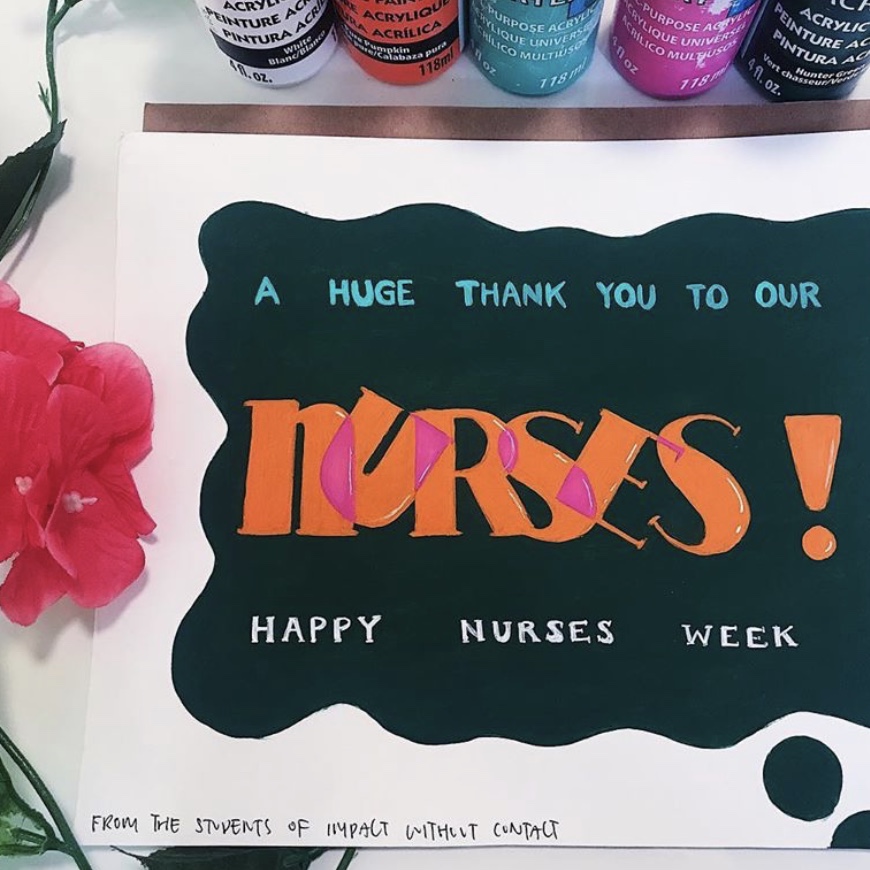 ACRYLIC
PEINTURE ACR
PINTURA ACRÍ
White
Blanc/Blanco
4 fl. oz.
PAINT
ACRYLIQUE
ACRÍLICA
Pumpkin
pure/Calabaza pura
118ml
-PURPOSE ACRYLIC
UNIVERSEL
ACRÍLICO MULTIUSOS
fl oz
118 ml
-PURPOSE ACRYLIC
ACRYLIQUE UNIVERSEL
ACRÍLICO MULTIUSOS
4 fl oz
118 ml
ACRYLIC
PEINTURE AC
PINTURA AC
Hunter Green
Vert chasseur/Verde
4 fl. oz.
A HUGE THANK YOU TO OUR
NURSES!
HAPPY NURSES WEEK
FROM THE STUDENTS OF IMPACT WITHOUT CONTACT